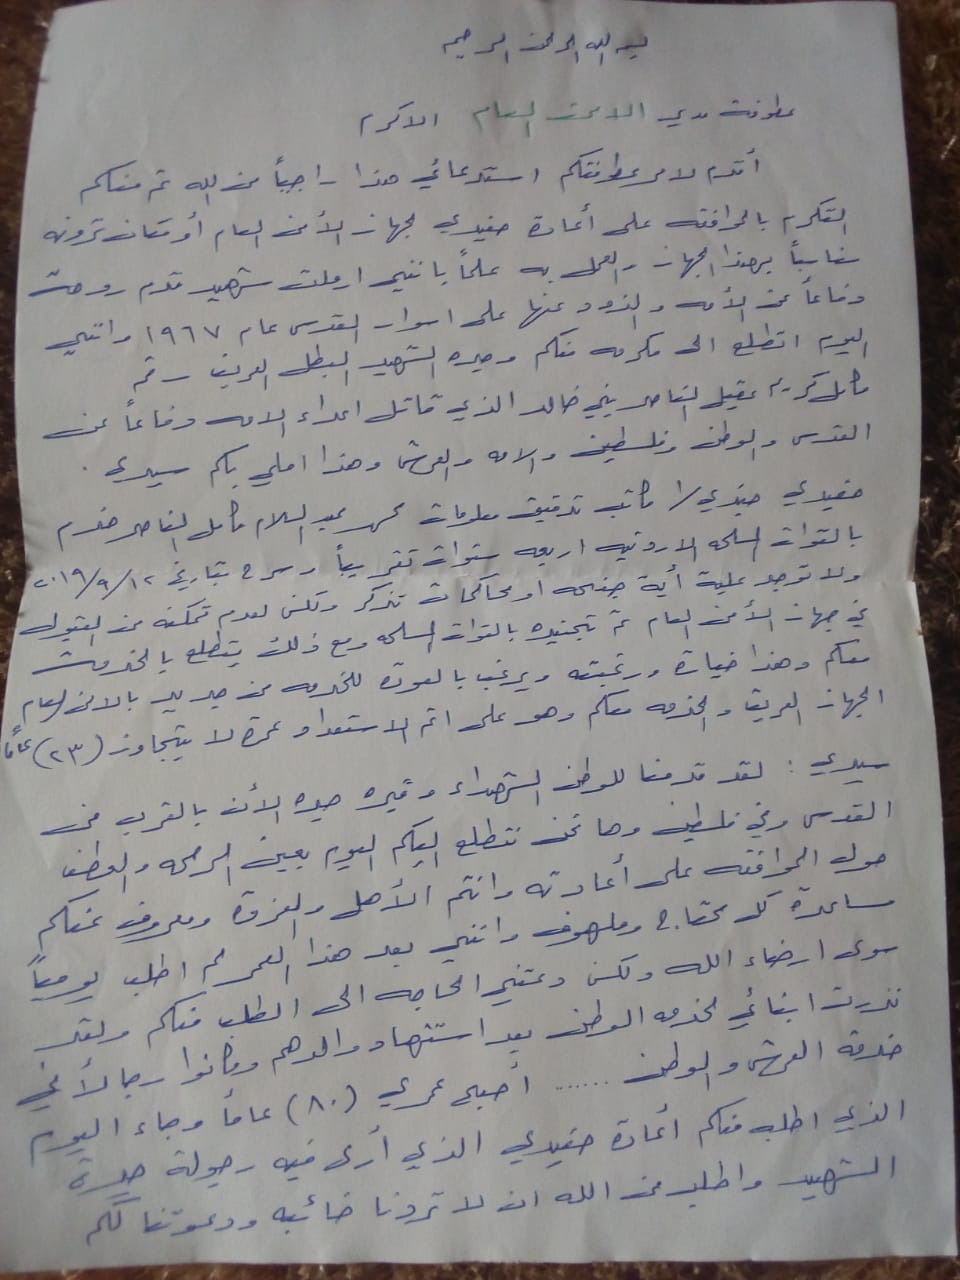 بسم الله الرحمن الرحيم
عطوفة مدير الامن العام الاكرم
أتقدم لامر عطوفتكم استدعائي هذا راجياً من الله ثم منكم
التكرم بالموافقه على أعادة حفيدي لجهاز الأمن العام أو مكان ترونه
مناسباً بهذا الجهاز والعمل به علماً بانني ارملت شهيد قدم روحه
دفاعاً عن الأمه والذود عنها على اسوار القدس عام ١٩٦٧ وانني
اليوم اتطلع الى مكرمه منكم وجده الشهيد البطل العريف رقم
كامل كريم عقيل الناصر بني خالد الذي قاتل اعداء الامه دفاعاً عن
القدس والوطن وفلسطين والامه والعرش وهذا املي بكم سيدي .
حفيدي جندي/١ كاتب تدقيق معلومات محمد عبد السلام كامل الناصر خدم
بالقوات المسلحه الاردنيه اربعه سنوات تقريباً وسرح بتاريخ ٢٠١٩/٩/١٢
ولا توجد عليه أية جنحه او محاكمات تذكر ولكن لعدم تمكنه من القبول
في جهاز الأمن العام تم تجنيده بالقوات المسلحه ومع ذلك يتطلع بالخدمه
معكم وهذا خياره ورغبته ويرغب بالعوده للخدمه من جديد بالامن العام
الجهاز العريق والخدمه معكم وهو على اتم الاستعداد عمره لا يتجاوز (٢٣) عاماً
سيدي : لقد قدمنا للوطن الشهداء وقبره جده الأن بالقرب من
القدس وفي فلسطين وها نحن نتطلع اليكم اليوم بعين الرحمه والعطف
حول الموافقه على أعادته وانتم الأهل والعزوة ومعروف عنكم
مساعدة كل محتاج وملهوف وانني بعد هذا العمر لم اطلب يومياً
سوى ارضاء الله ولكن دعتني الحاجه الى الطلب منكم ولقد
نذرت ابنائي لخدمه الوطن بعد استشهاد والدهم وكانوا رجالاً في
خدمة العرش والوطن ...... أصبح عمري (٨٠) عاماً وجاء اليوم
الذي اطلب منكم أعادة حفيدي الذي أرى فيه رجولة جده
الشهيد واطلب من الله ان لا تردونا خائبه ودعوتنا لكم